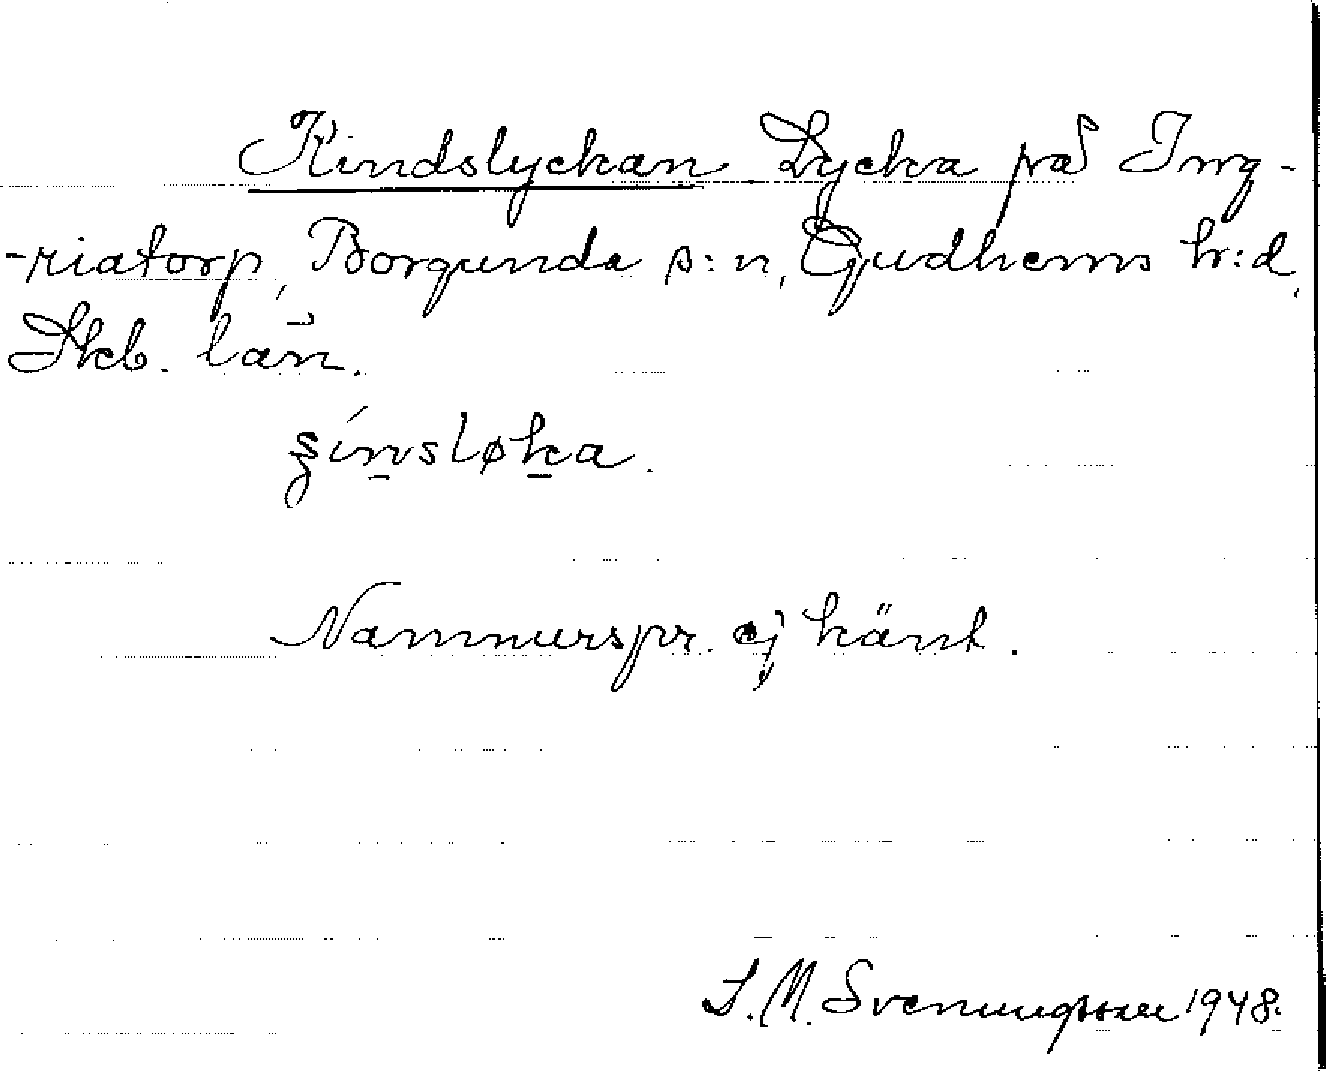 Kindslyckan Lycka på Ing-
-riatorp, Borgunda s:n, Gudhems h:d,
Skb. län.
ʂínsløka.
Namnurspr. ej känt.
S. M. Svenungsson 1948.